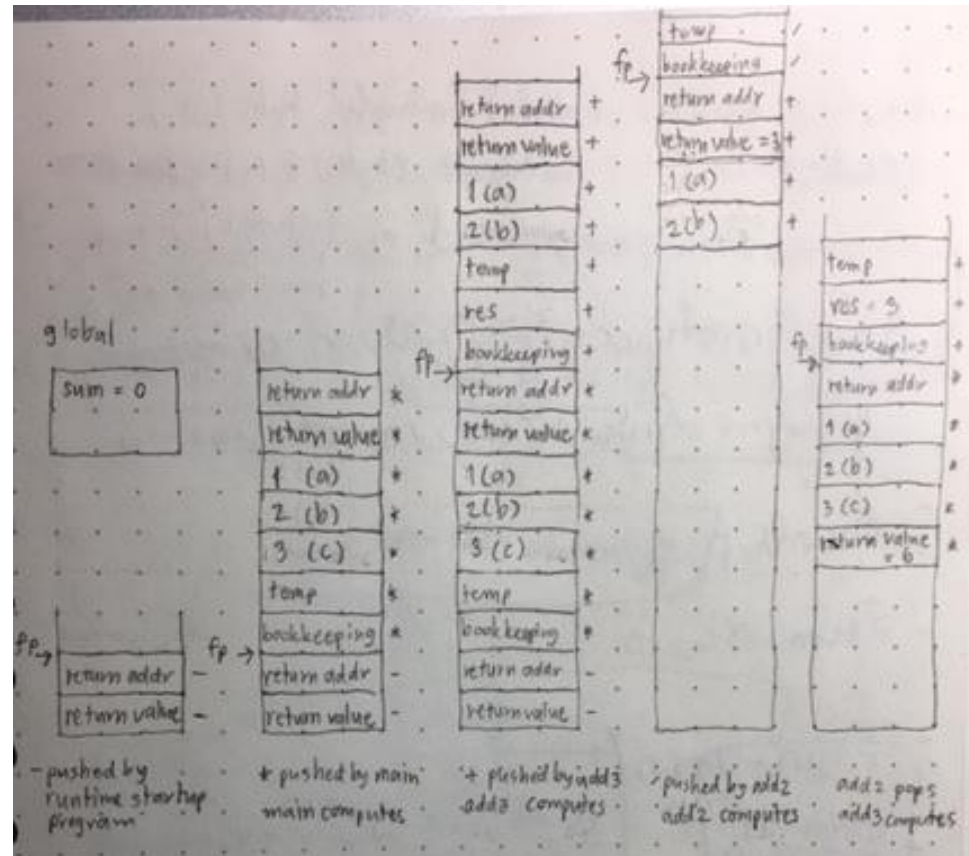 global
sum = 0
fp →
return addr -
return value -
- pushed by
runtime startup
program
return addr *
return value *
1 (a) *
2 (b) *
3 (c) *
temp *
bookkeeping *
fp →
return addr -
return value -
* pushed by main
main computes
return addr +
return value +
1 (a) +
2 (b) +
temp +
res +
bookkeeping +
fp →
return addr *
return value *
1 (a) *
2 (b) *
3 (c) *
temp *
bookkeeping *
return addr -
return value -
+ pushed by add3
add3 computes
temp /
bookkeeping /
fp →
return addr +
return value = 3 +
1 (a) +
2 (b) +
/ pushed by add2
add2 computes
temp +
res = 3 +
bookkeeping +
fp →
return addr *
1 (a) *
2 (b) *
3 (c) *
return value
= 6 *
add2 pops
add3 computes